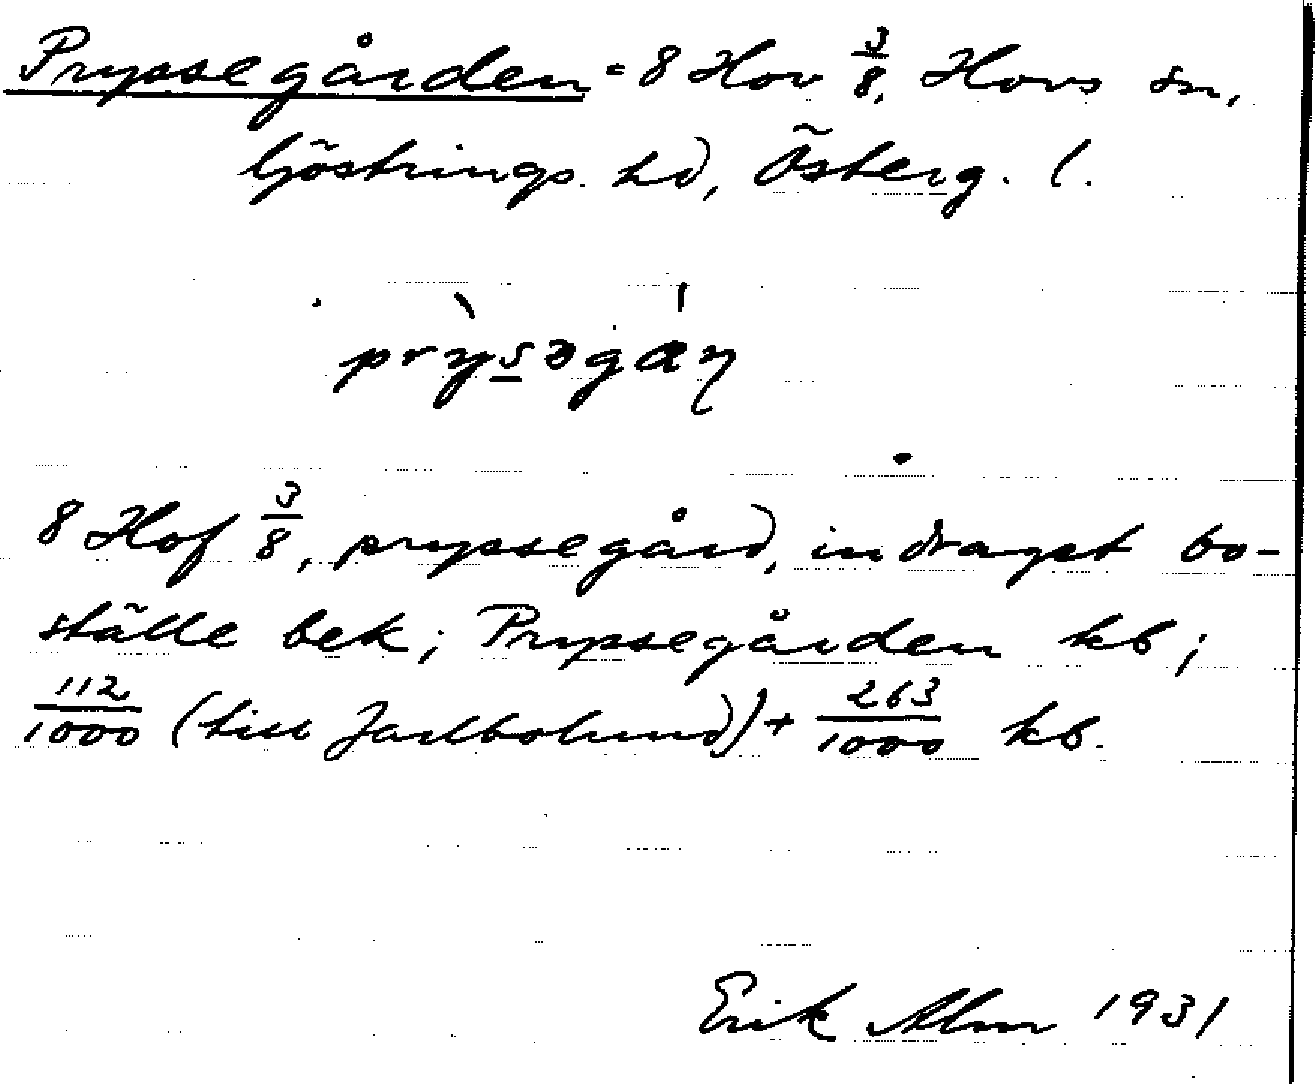 Pryssegården = 8 Hov 3/8, Hovs sn,
Göstrings hd, Österg. l.
prỳsəgán
8 Hof 3/8, pryssegård, indraget bo-
ställe bek; Pryssegården kb;
112/1000 (till Jarlbolund) + 263/1000 kb.
Erik Alm 1931